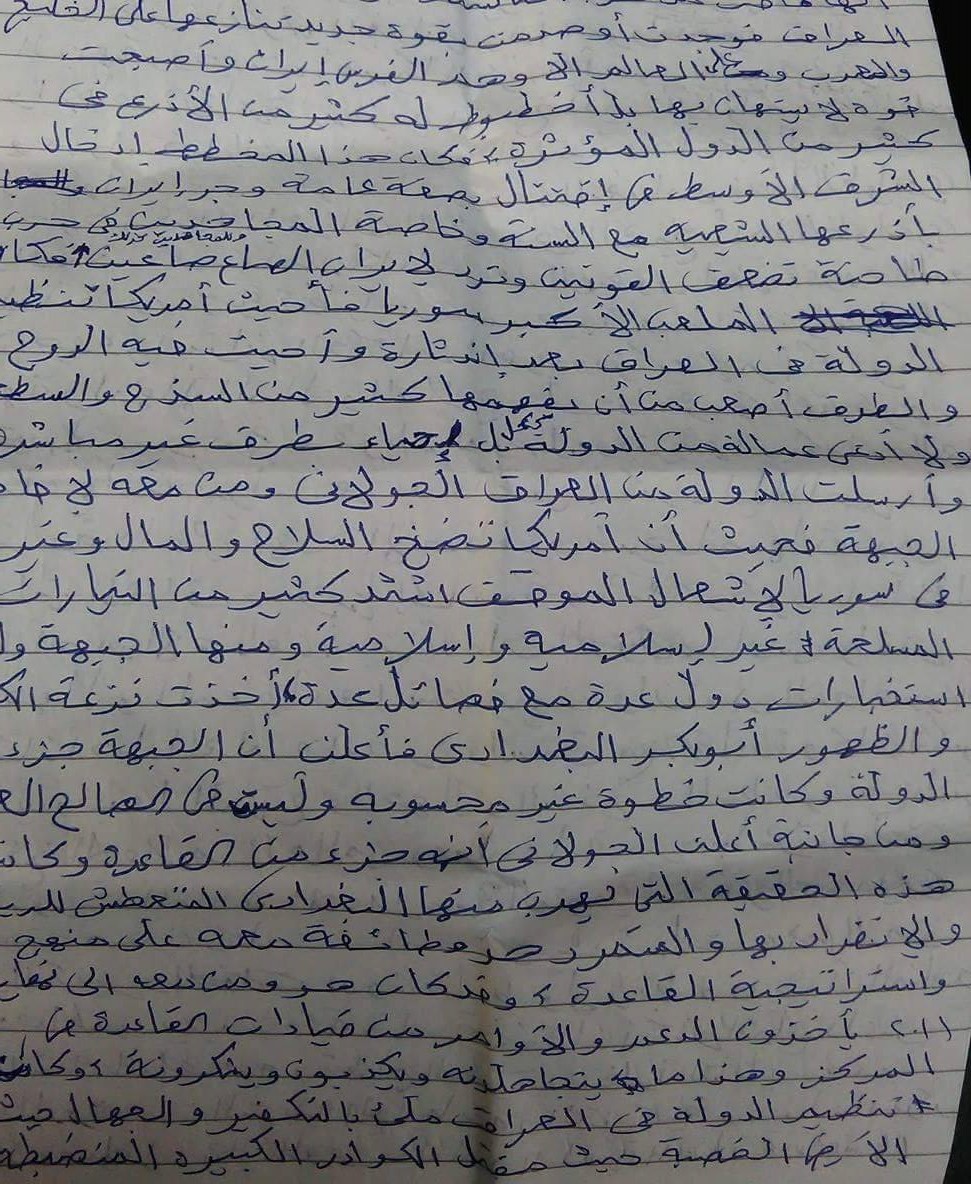 العراق فوجدت أو صدمت بقوة جديدة تنازعها على الخليج
والعرب و العالم ألا وهذ الفرس إيران وأصبحت
قوة لا يتهان بها بل أخطبوط له كثير من الأذرع فى
كثير من الدول المؤثرة، فكان هذا المخطط إدخال
الشرق الأوسط فى إقتتال بصفة عامة وجر إيران
بأذرعها الشيعيه مع السنة وخاصة المجاهدين فى حرب
طاحنة تضعف القوتين وترد لإيران الصاع صاعين فكا
الملعب الأكبر سوريا فأحيت أمريكا تنظيم
الدولة فى العراق بعد إندثارة وأحيت فيه الروح
والطرق أصعب من أن يفهمها كثير من السذج والسط
ولا أدعى عمالة من الدولة بل إحياء بطرق غير مباشرة
وأرسلت الدولة من العراق الجولانى ومن معه لإ
الجبهة فحيث أن أمريكا تضخ السلاح والمال وغير
فى سوريا لإشعال الموقف اشتد كثير من التيارات
المسلحة غير إسلامية وإسلامية ومنها الجبهة وا
استخبارات دولاً عدة مع فصائل عدة، أخذت نزعة الك
والظهور أبوبكر البغدادى فأعلن أن الجبهة جزء
الدولة وكانت خطوة غير محسوبه وليست فى الصالح الع
ومن جانبة أعلن الجولانى أنه جزء من القاعدة وكان
هذه الحقيقة التى تهرب منها البغدادى المتعطش للري
والإنفراد بها والمتمرد هو وطائفة معه على منهج
واستراتيجية القاعدة، وقد كان هو ومن معه الى نهاي
٢٠١١ يأخذون الدعم والأوامر من قيادات القاعدة فى
المركز وهذا ما يتجاهلونه ويكذبون وينكرونة، وكان
تنظيم الدولة فى العراق ملئ بالتكفير والجهال حيث
الأرض الخصبة حيث مقتل الكوادر الكبيرة المنضبطة